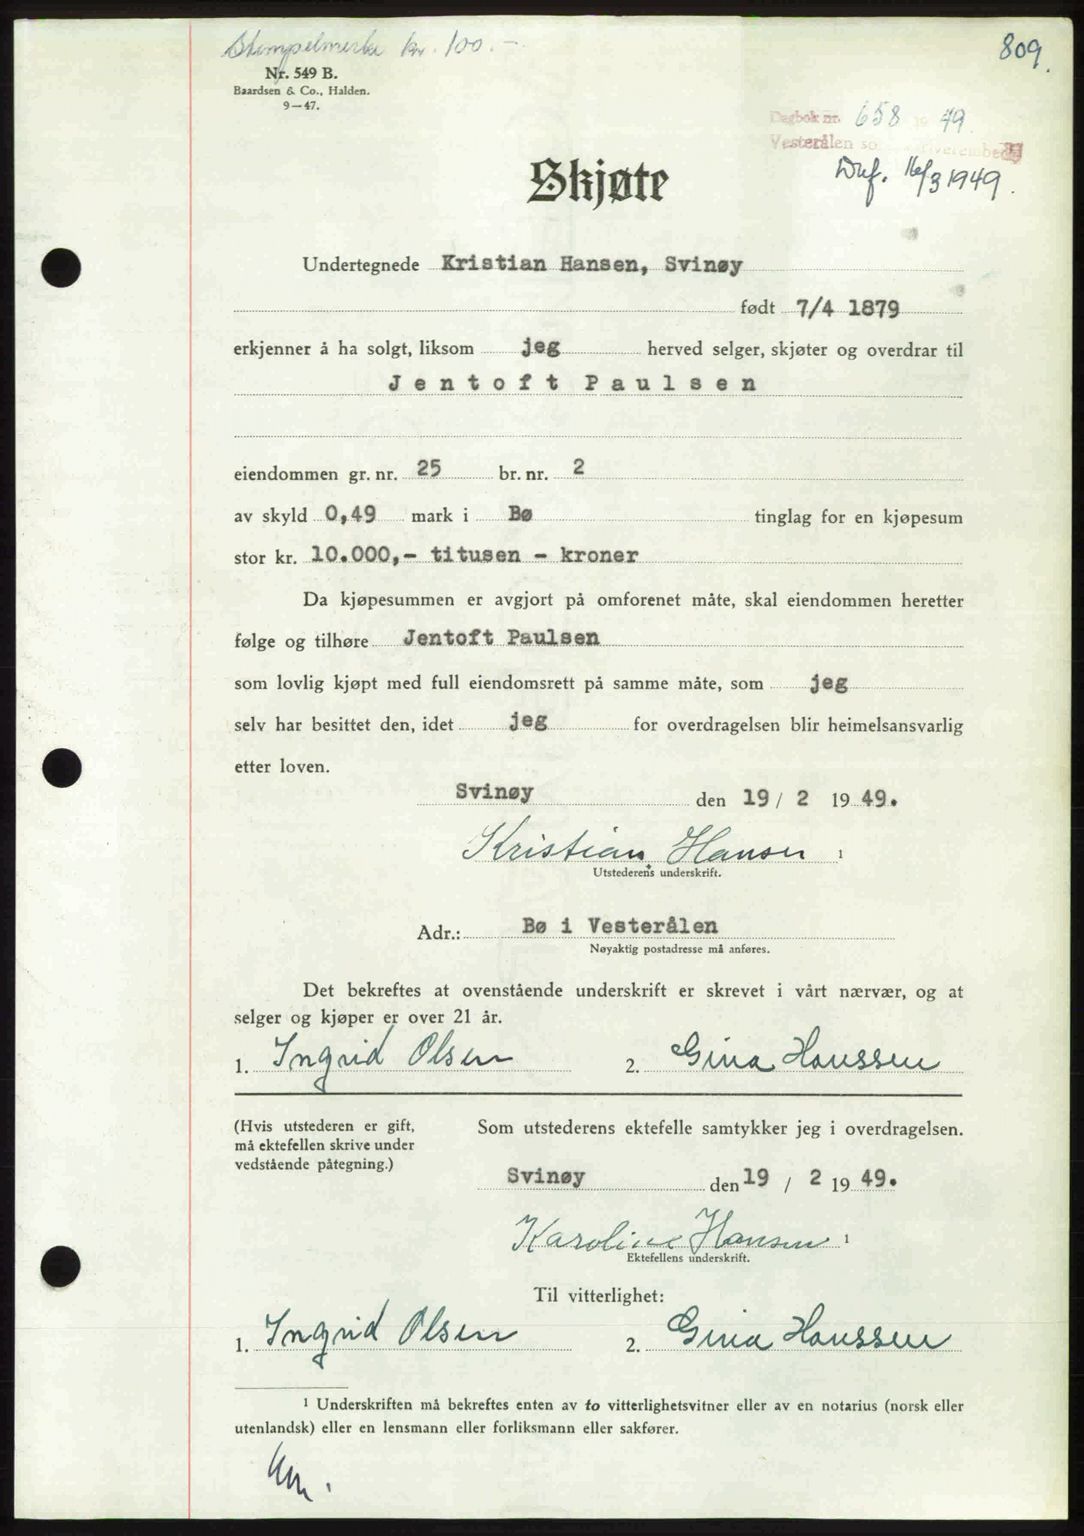 Stempelmerke kr. 100.-
809.
Nr. 549 B.
Baardsen & Co., Halden.
9-47.
Dagbok nr. 658 19 49
Vesterålen sorenskriverembede
16/3 1949.
Skjøte
Undertegnede Kristian Hansen, Svinøy
født 7/4 1879
erkjenner å ha solgt, liksom jeg herved selger, skjøter og overdrar til
Jentoft Paulsen
eiendommen gr. nr. 25 br. nr. 2
av skyld 0,49 mark i Bø tinglag for en kjøpesum
stor kr. 10.000,- titusen - kroner
Da kjøpesummen er avgjort på omforenet måte, skal eiendommen heretter
følge og tilhøre Jentoft Paulsen
som lovlig kjøpt med full eiendomsrett på samme måte, som jeg
selv har besittet den, idet jeg for overdragelsen blir heimelsansvarlig
etter loven.
Svinøy den 19 / 2 19 49.
Kristian Hansen 1
Utstederens underskrift.
Adr.: Bø i Vesterålen
Nøyaktig postadresse må anføres.
Det bekreftes at ovenstående underskrift er skrevet i vårt nærvær, og at
selger og kjøper er over 21 år.
1. Ingrid Olsen 2. Gina Hanssen
(Hvis utstederen er gift,
må ektefellen skrive under
vedstående påtegning.)
Som utstederens ektefelle samtykker jeg i overdragelsen.
Svinøy den 19 / 2 19 49.
Karoline Hansen 1
Ektefellens underskrift.
Til vitterlighet:
1. Ingrid Olsen 2. Gina Hanssen
1 Underskriften må bekreftes enten av to vitterlighetsvitner eller av en notarius (norsk eller
utenlandsk) eller en lensmann eller forliksmann eller sakfører.